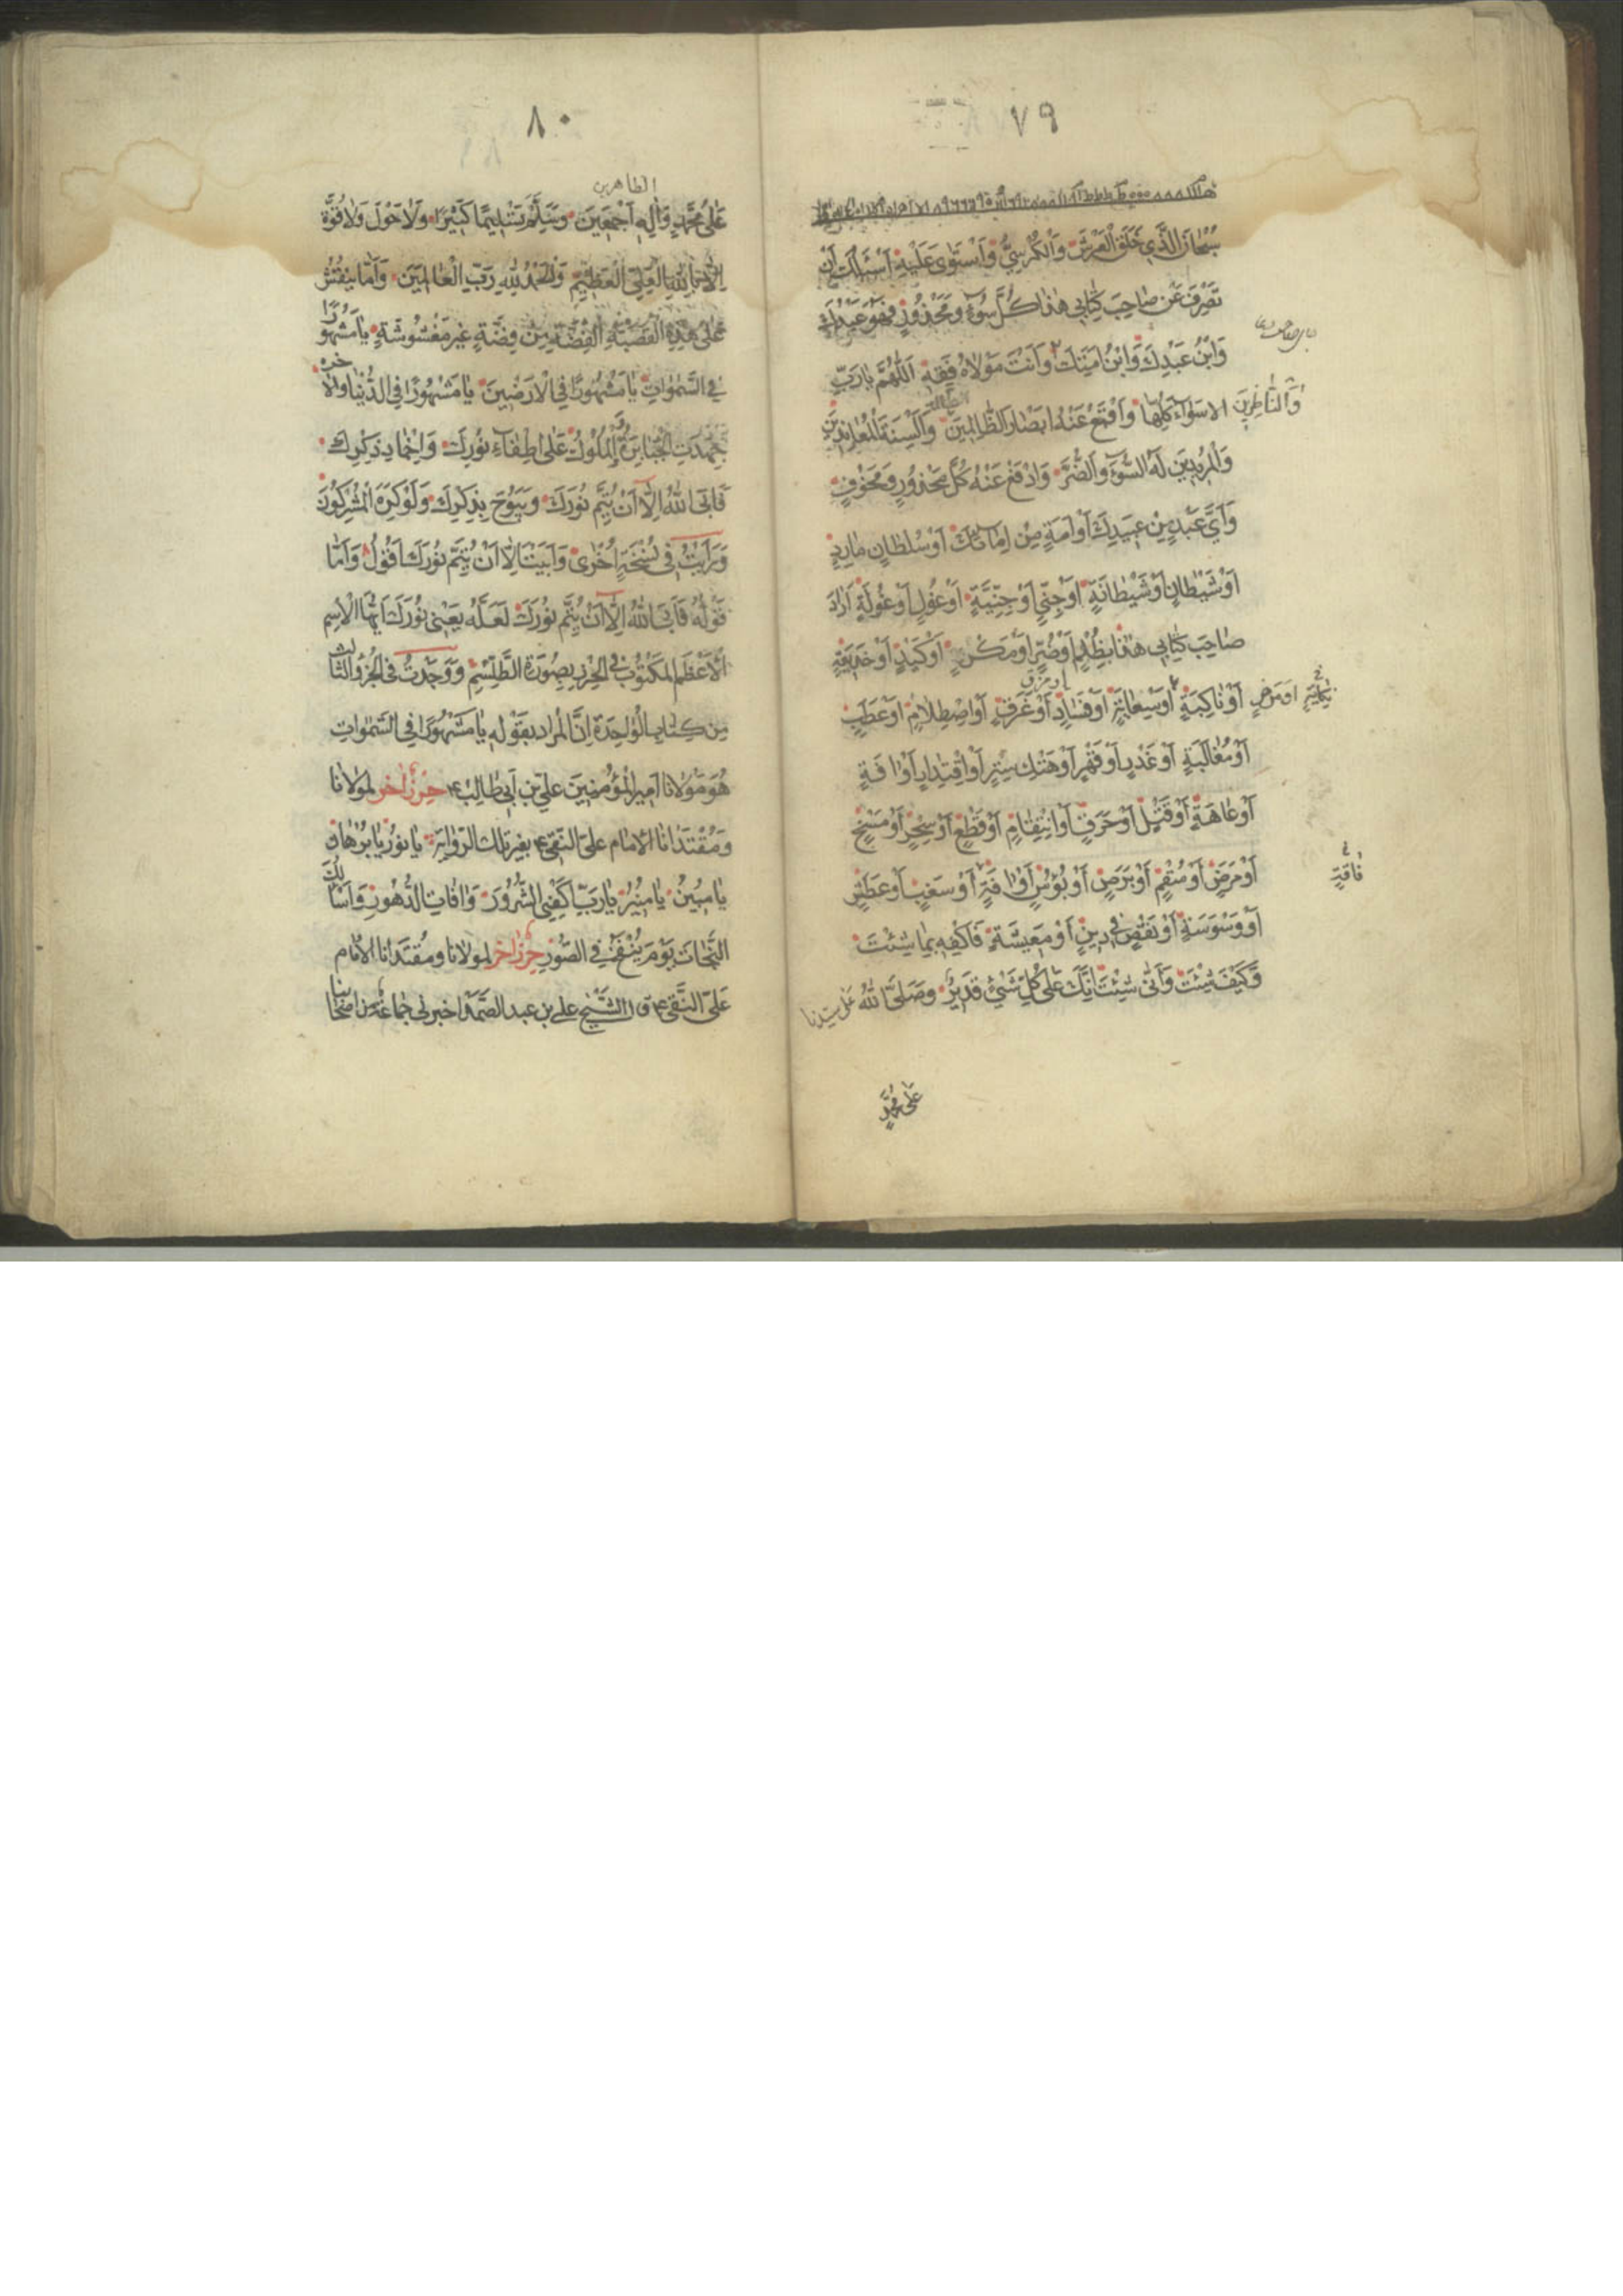 ٧٩
سُبْحَانَ الَّذِي خَلَقَ الْعَرْشَ وَالْكُرْسِيَّ وَاسْتَوٰى عَلَيْهِ اَسْئَلُكَ اَنْ
تَصْرِفَ عَنْ صَاحِبِ كِتَابِي هٰذَا كُلَّ سُوۤءٍ وَمَحْذُوْرٍ فَهُوَ عَبْدُكَ
وَابْنُ عَبْدِكَ وَابْنُ اَمَتِكَ وَاَنْتَ مَوْلَاهُ فَقِهِ اَللّٰهُمَّ يَا رَبِّ
الاسوآءَ كُلَّهَا وَاقْمَعْ عَنْهُ اَبْصَارَ الظَّالِمِيْنَ وَاَلْسِنَةَ الْمُعَانِدِيْنَ
وَالنَّاظِرِيْنَ
وَالْمُرِيْدِيْنَ لَهُ السُّوۤءَ وَالضُّرَّ وَادْفَعْ عَنْهُ كُلَّ مَحْذُوْرٍ وَمَخُوْفٍ
وَاَيَّ عَبْدٍ مِنْ عَبِيْدِكَ اَوْ اَمَةٍ مِنْ اِمَآئِكَ اَوْ سُلْطَانٍ مَارِدٍ
اَوْ شَيْطَانٍ اَوْ شَيْطَانَةٍ اَوْ جِنِّيٍّ اَوْ جِنِّيَّةٍ اَوْ غُوْلٍ اَوْ غُوْلَةٍ اَرَادَ
صَاحِبَ كِتَابِي هٰذَا بِظُلْمٍ اَوْ ضُرٍّ اَوْ مَكْرٍ اَوْ كَيْدٍ اَوْ خَدِيْعَةٍ
اَوْ نَاكِبَةٍ اَوْ سِعَايَةٍ اَوْ فَسَادٍ اَوْ غَرَقٍ اَوِ اصْطِلَامٍ اَوْ عَطَبٍ
نِكَايَةٍ اَوْ مَرَضٍ
اَوْ مُغَالَبَةٍ اَوْ غَدْرٍ اَوْ قَهْرٍ اَوْ هَتْكِ سِتْرٍ اَوِ اقْتِدَارٍ اَوْ اٰفَةٍ
اَوْ عَاهَةٍ اَوْ قَتْلٍ اَوْ حَرَقٍ اَوِ انْتِقَامٍ اَوْ قَطْعٍ اَوْ سِحْرٍ اَوْ مَسْخٍ
اَوْ مَرَضٍ اَوْ سُقْمٍ اَوْ بَرَصٍ اَوْ بُؤْسٍ اَوْ اٰفَةٍ اَوْ سَغَبٍ اَوْ عَطَشٍ
فَاقَةٍ
اَوْ وَسْوَسَةٍ اَوْ نَقْصٍ فِي دِيْنٍ اَوْ مَعِيْشَةٍ فَاكْفِهِ بِمَا شِئْتَ
وَكَيْفَ شِئْتَ وَاَنّٰى شِئْتَ اِنَّكَ عَلٰى كُلِّ شَيْءٍ قَدِيْرٌ وَصَلَّى اللهُ عَلٰى سيدنا
عَلٰى مُحَمَّدٍ
٨٠
الطاهرين
عَلٰى مُحَمَّدٍ وَاٰلِهِ اَجْمَعِيْنَ وَسَلَّمَ تَسْلِيْمًا كَثِيْرًا وَلَا حَوْلَ وَلَا قُوَّةَ
اِلَّا بِاللهِ الْعَلِيِّ الْعَظِيْمِ وَالْحَمْدُ لِلّٰهِ رَبِّ الْعَالَمِيْنَ وَاَمَّا يُنْقَشُ
عَلٰى هٰذِهِ الْقَصَبَةِ الْفِضَّةِ مِنْ فِضَّةٍ غَيْرِ مَغْشُوْشَةٍ يَا مَشْهُوْرًا
فِي السَّمٰوَاتِ يَا مَشْهُوْرًا فِي الْاَرَضِيْنَ يَا مَشْهُوْرًا فِي الدُّنْيَا وَالْاٰخِرَةِ
جَهَدَتِ الْجَبَابِرَةُ وَالْمُلُوْكُ عَلٰى اِطْفَآءِ نُوْرِكَ وَاِخْمَادِ ذِكْرِكَ
فَاَبَى اللهُ اِلَّا اَنْ يُتِمَّ نُوْرَكَ وَيَبُوْحَ بِذِكْرِكَ وَلَوْ كَرِهَ الْمُشْرِكُوْنَ
وَرَاَيْتُ فِي نُسْخَةٍ اُخْرٰى وَاَبَيْتَ اِلَّا اَنْ يُتِمَّ نُوْرَكَ اَقُوْلُ وَاَمَّا
قَوْلُهُ فَاَبَى اللهُ اِلَّا اَنْ يُتِمَّ نُوْرَكَ لَعَلَّهُ يَعْنِي نُوْرَكَ اَيُّهَا الْاِسْمُ
الْاَعْظَمُ الْمَكْتُوْبُ فِي الْحِرْزِ بِصُوْرَةِ الطِّلِسْمِ وَوَجَدْتُ فِي الْجُزْءِ الثَّالِثِ
مِنْ كِتَابِ الْوَاحِدَةِ اِنَّ الْمُرَادَ بِقَوْلِهِ يَا مَشْهُوْرًا فِي السَّمٰوَاتِ
هُوَ مَوْلَانَا اَمِيْرُ الْمُؤْمِنِيْنَ عَلِيُّ بْنُ اَبِي طَالِبٍ ع حِرْزٌ اٰخَرُ لِمَوْلَانَا
وَمُقْتَدَانَا الْاِمَامِ عَلِيٍّ النَّقِي ع بِغَيْرِ تِلْكَ الرِّوَايَةِ يَا نُوْرُ يَا بُرْهَانُ
يَا مُبِيْنُ يَا مُنِيْرُ يَا رَبِّ اكْفِنِي الشُّرُوْرَ وَاٰفَاتِ الدُّهُوْرِ وَاَسْاَلُكَ
النَّجَاةَ يَوْمَ يُنْفَخُ فِي الصُّوْرِ حِرْزٌ اٰخَرُ لِمَوْلَانَا وَمُقْتَدَانَا الْاِمَامِ
عَلِيٍّ النَّقِي ع ق الشَّيْخُ علي بن عبد الصَّمَد اخبرني جَمَاعَةٌ من اَصْحَابِنَا